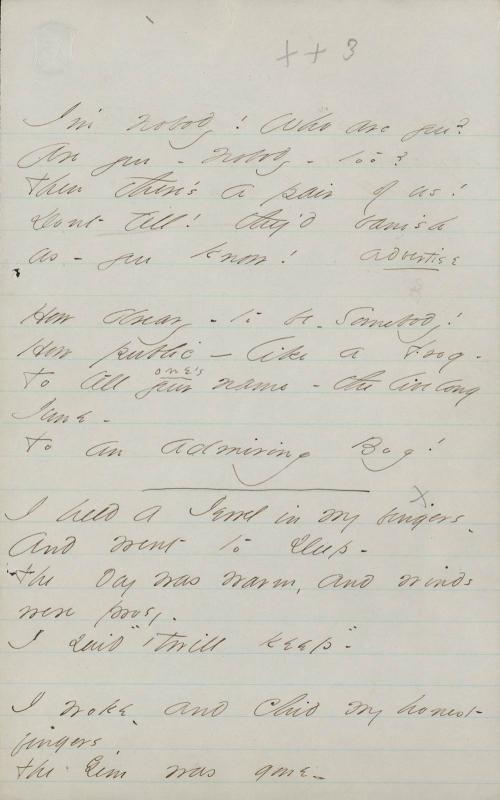 x x 3
I'm Nobody! Who are you?
Are you - Nobody - too?
Then there's a pair of us!
Dont tell! they'd banish
us - you know! advertise
How dreary - to be - Somebody!
How public - like a Frog -
To tell your name - the livelong
one's
June -
To an admiring Bog!
x
I held a Jewel in my fingers
And went to sleep -
The day was warm, and winds
were prosy,
I said "'Twill keep" -
I woke, and chid my honest
fingers,
The Gem was gone -